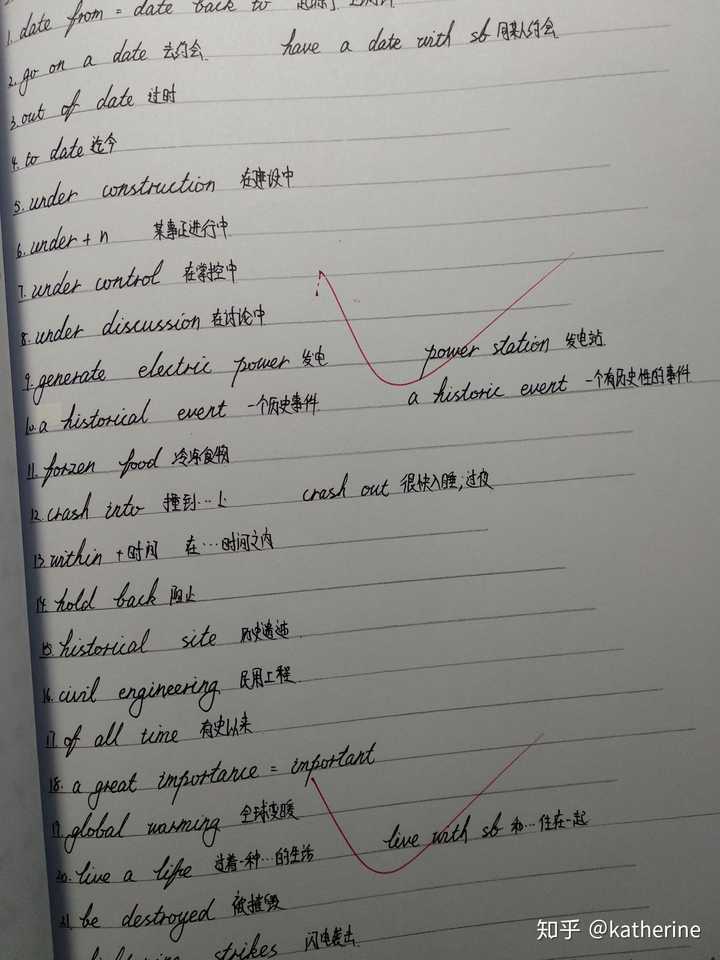 1. date from = date back to
2. go on a date 去约会 have a date with sb 同某人约会
3. out of date 过时
4. to date 迄今
5. under construction 在建设中
6. under + n 某事正进行中
7. under control 在掌控中
8. under discussion 在讨论中
9. generate electric power 发电 power station 发电站
10. a historical event 一个历史事件 a historic event 一个有历史性的事件
11. forzen food 冷冻食物
12. crash into 撞到…上 crash out 很快入睡;过夜
13. within + 时间 在…时间之内
14. hold back 阻止
15. historical site 历史遗迹
16. civil engineering 民用工程
17. of all time 有史以来
18. a great importance = important
19. global warming 全球变暖
20. live a life 过着一种…的生活 live with sb 和…住在一起
21. be destroyed 被摧毁
strikes 闪电袭击
知乎 @katherine